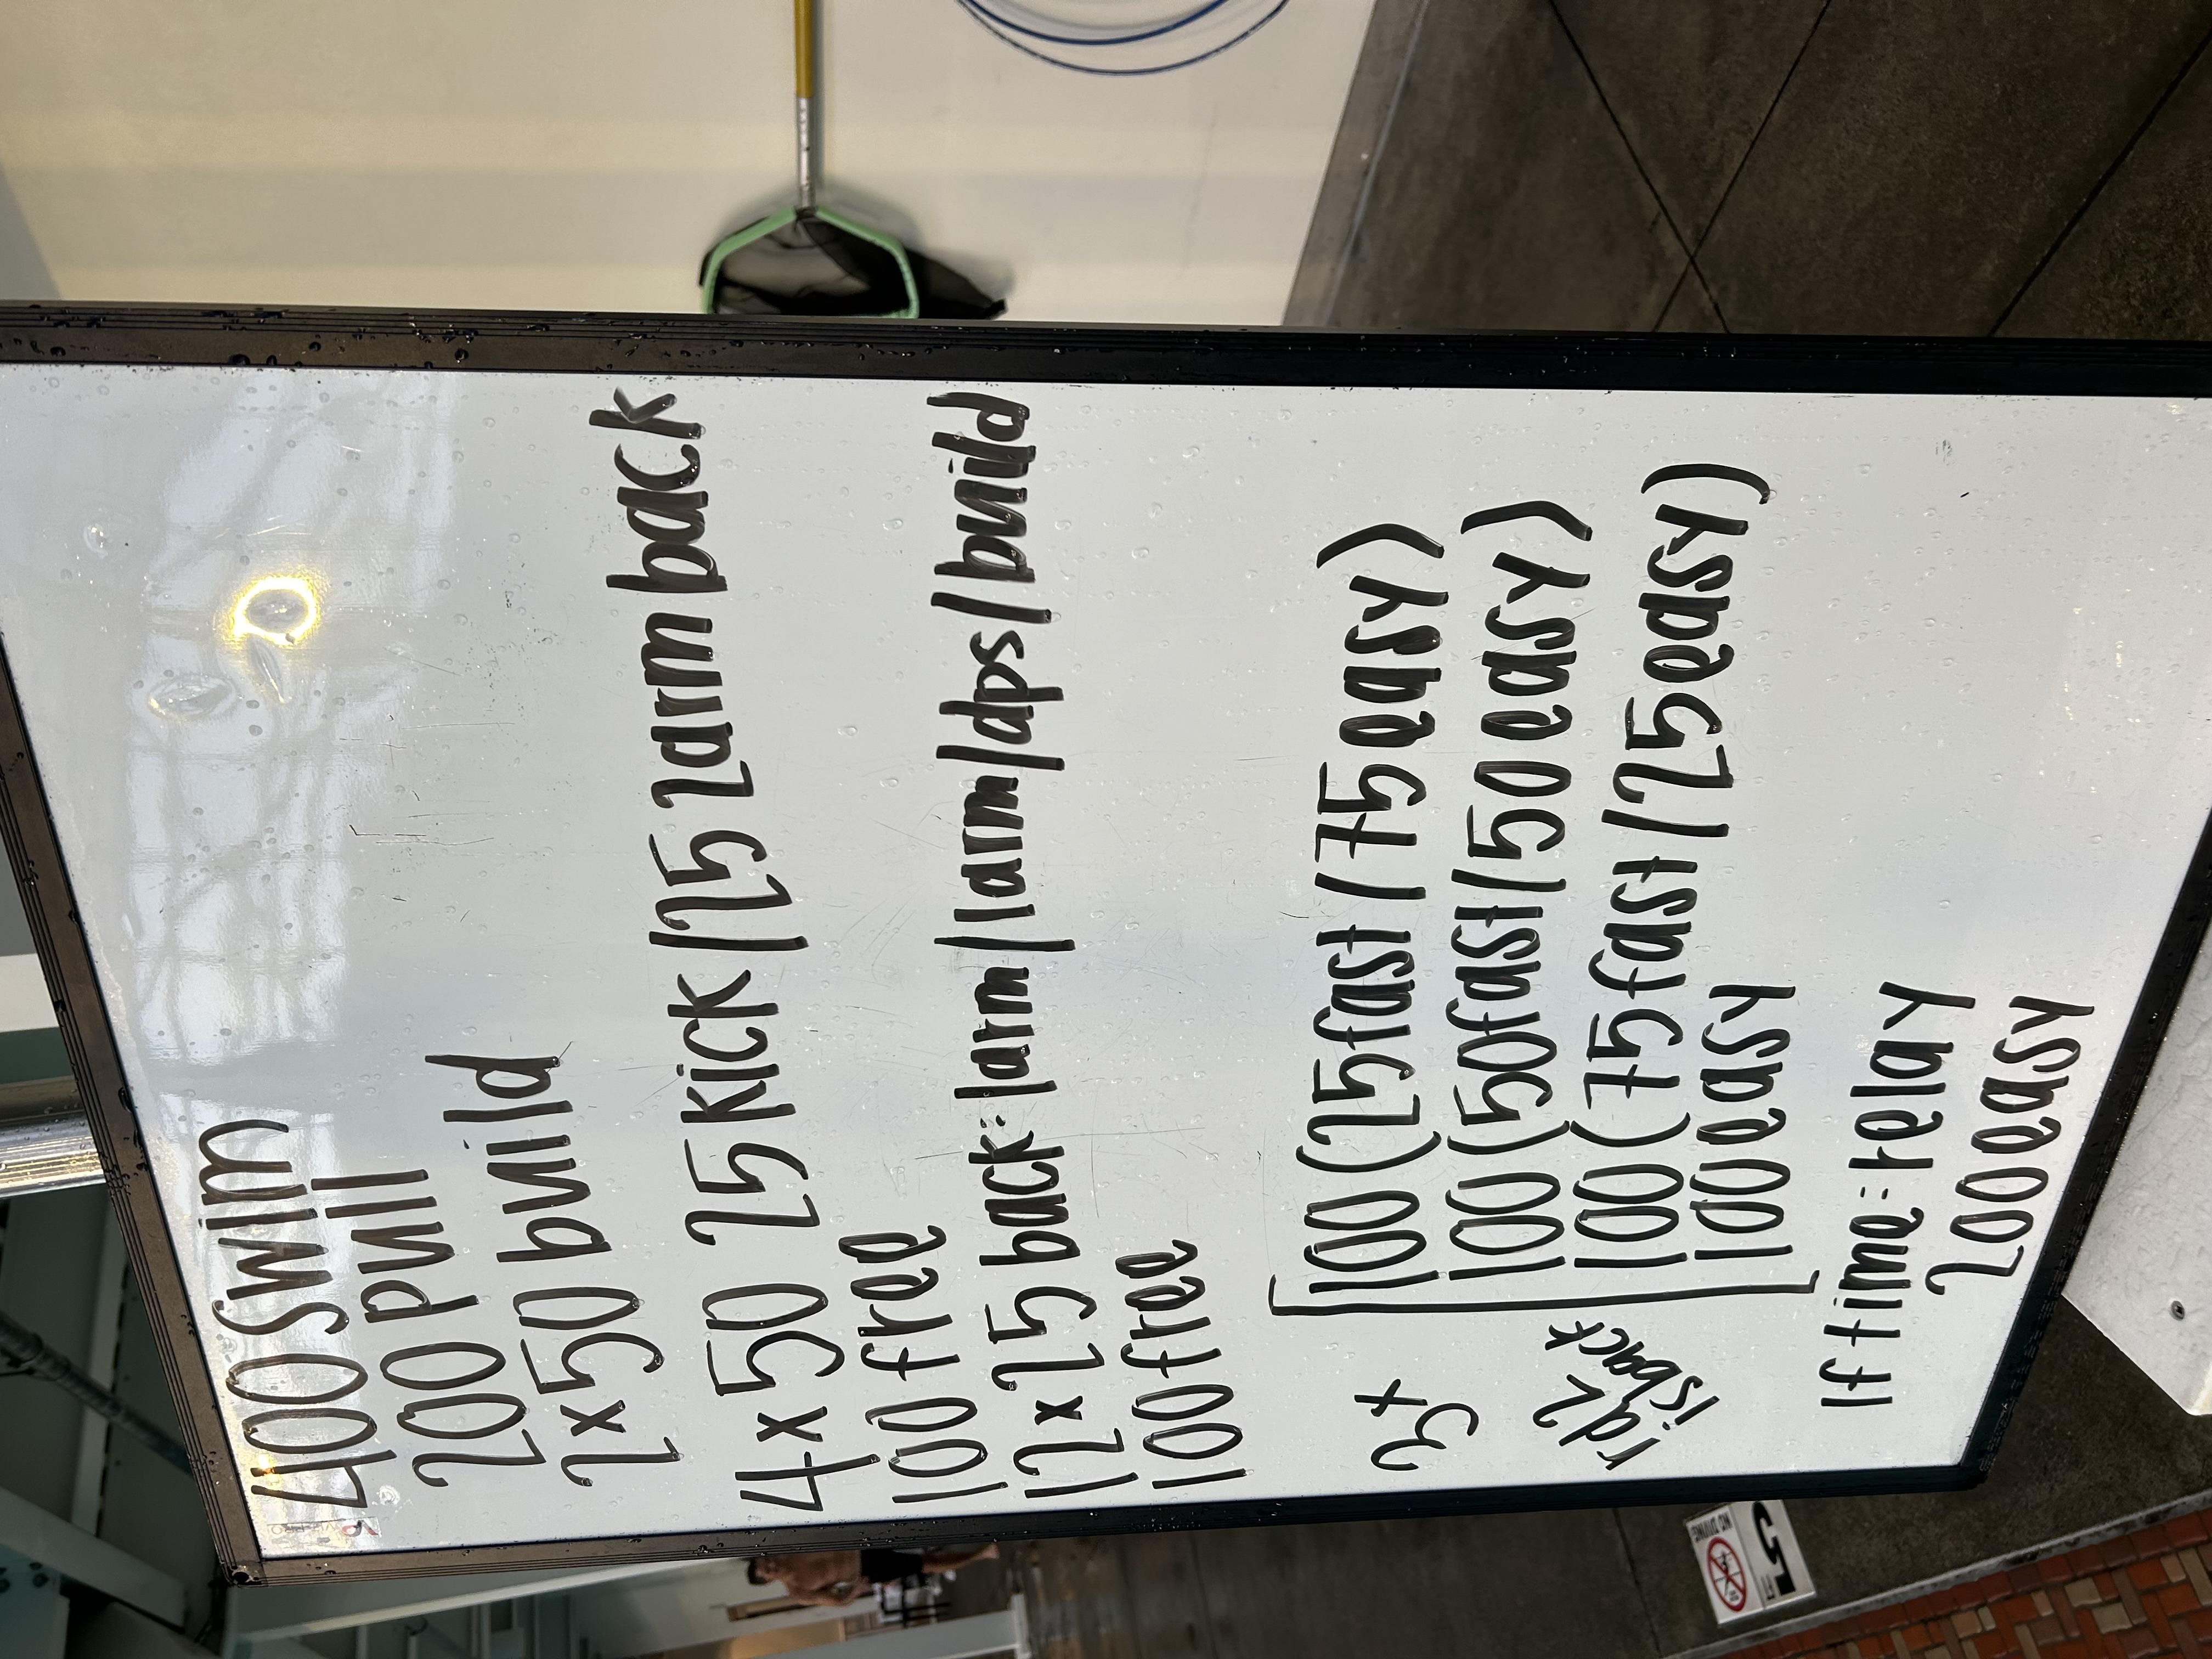 400 swim
200 pull
2x50 build
4x50 25 kick/25 2arm back
100 free
12x25 back: 1arm/1arm/dps/build
100 free
3x
rd2
is back
100 (25 fast/75 easy)
100 (50 fast/50 easy)
100 (75 fast/25 easy)
100 easy
If time: relay
200 easy
NO DIVING
5
FT